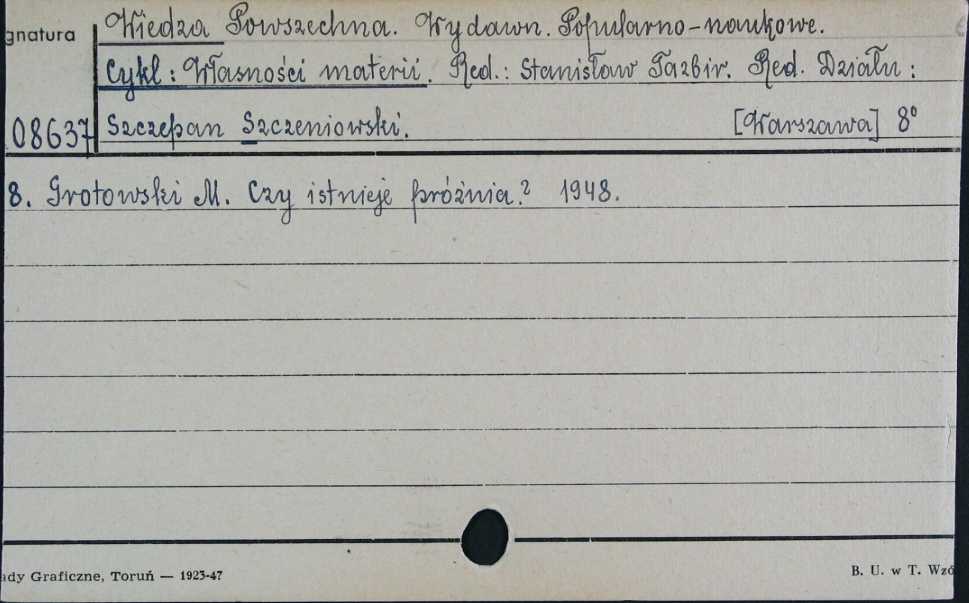 gnatura
Wiedza Powszechna. Wydawn. Popularno-naukowe.
Cykl: Własności materii. Red.: Stanisław Tazbir. Red. Działu:
08637 Szczepan Szczeniowski. [Warszawa] 8°
8. Grotowski M. Czy istnieje próżnia? 1948.
ady Graficzne, Toruń — 1923-47
B. U. w T. Wzó